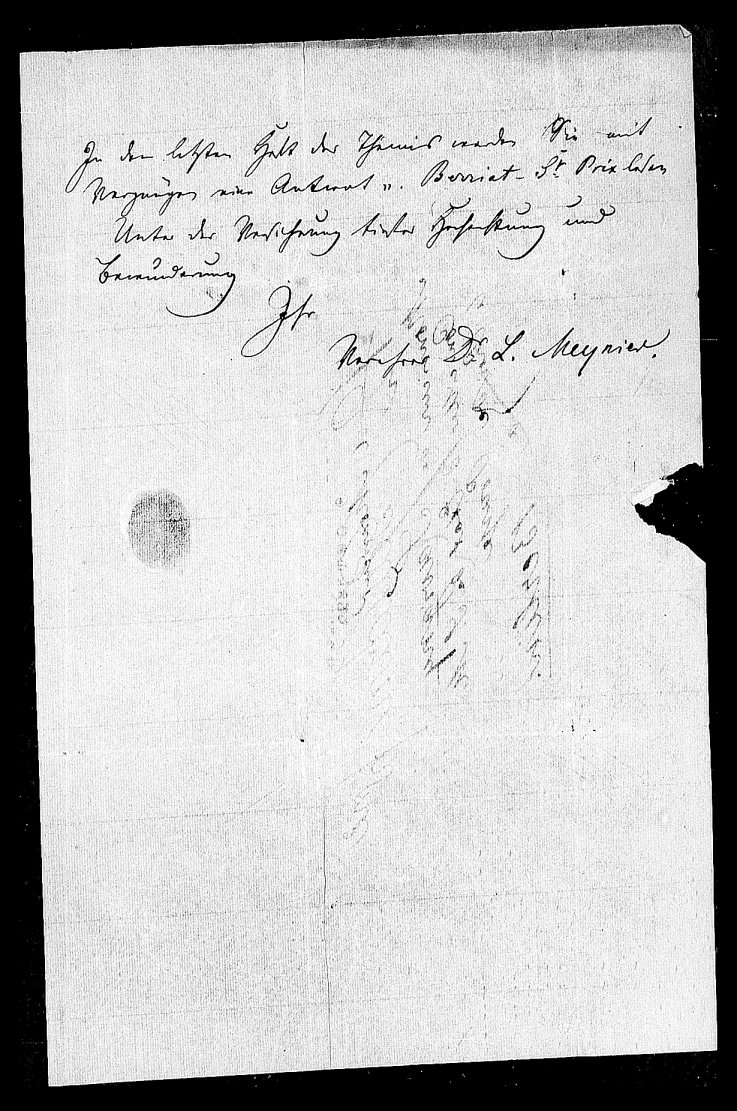 In dem letzten Heft der Themis werden Sie mit
Vergnügen eine Antwort v. Berriat-St Prix lesen
Unter der Versicherung tiefster Hochachtung und
Bewunderung
Ihr
Verehrer Dr L. Meynier.